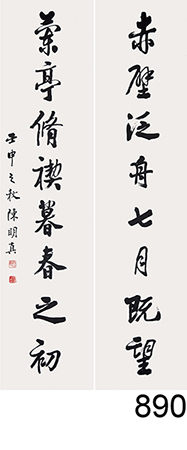 赤壁泛舟七月既望
蘭亭脩禊暮春之初
壬申之秋陳明真
890